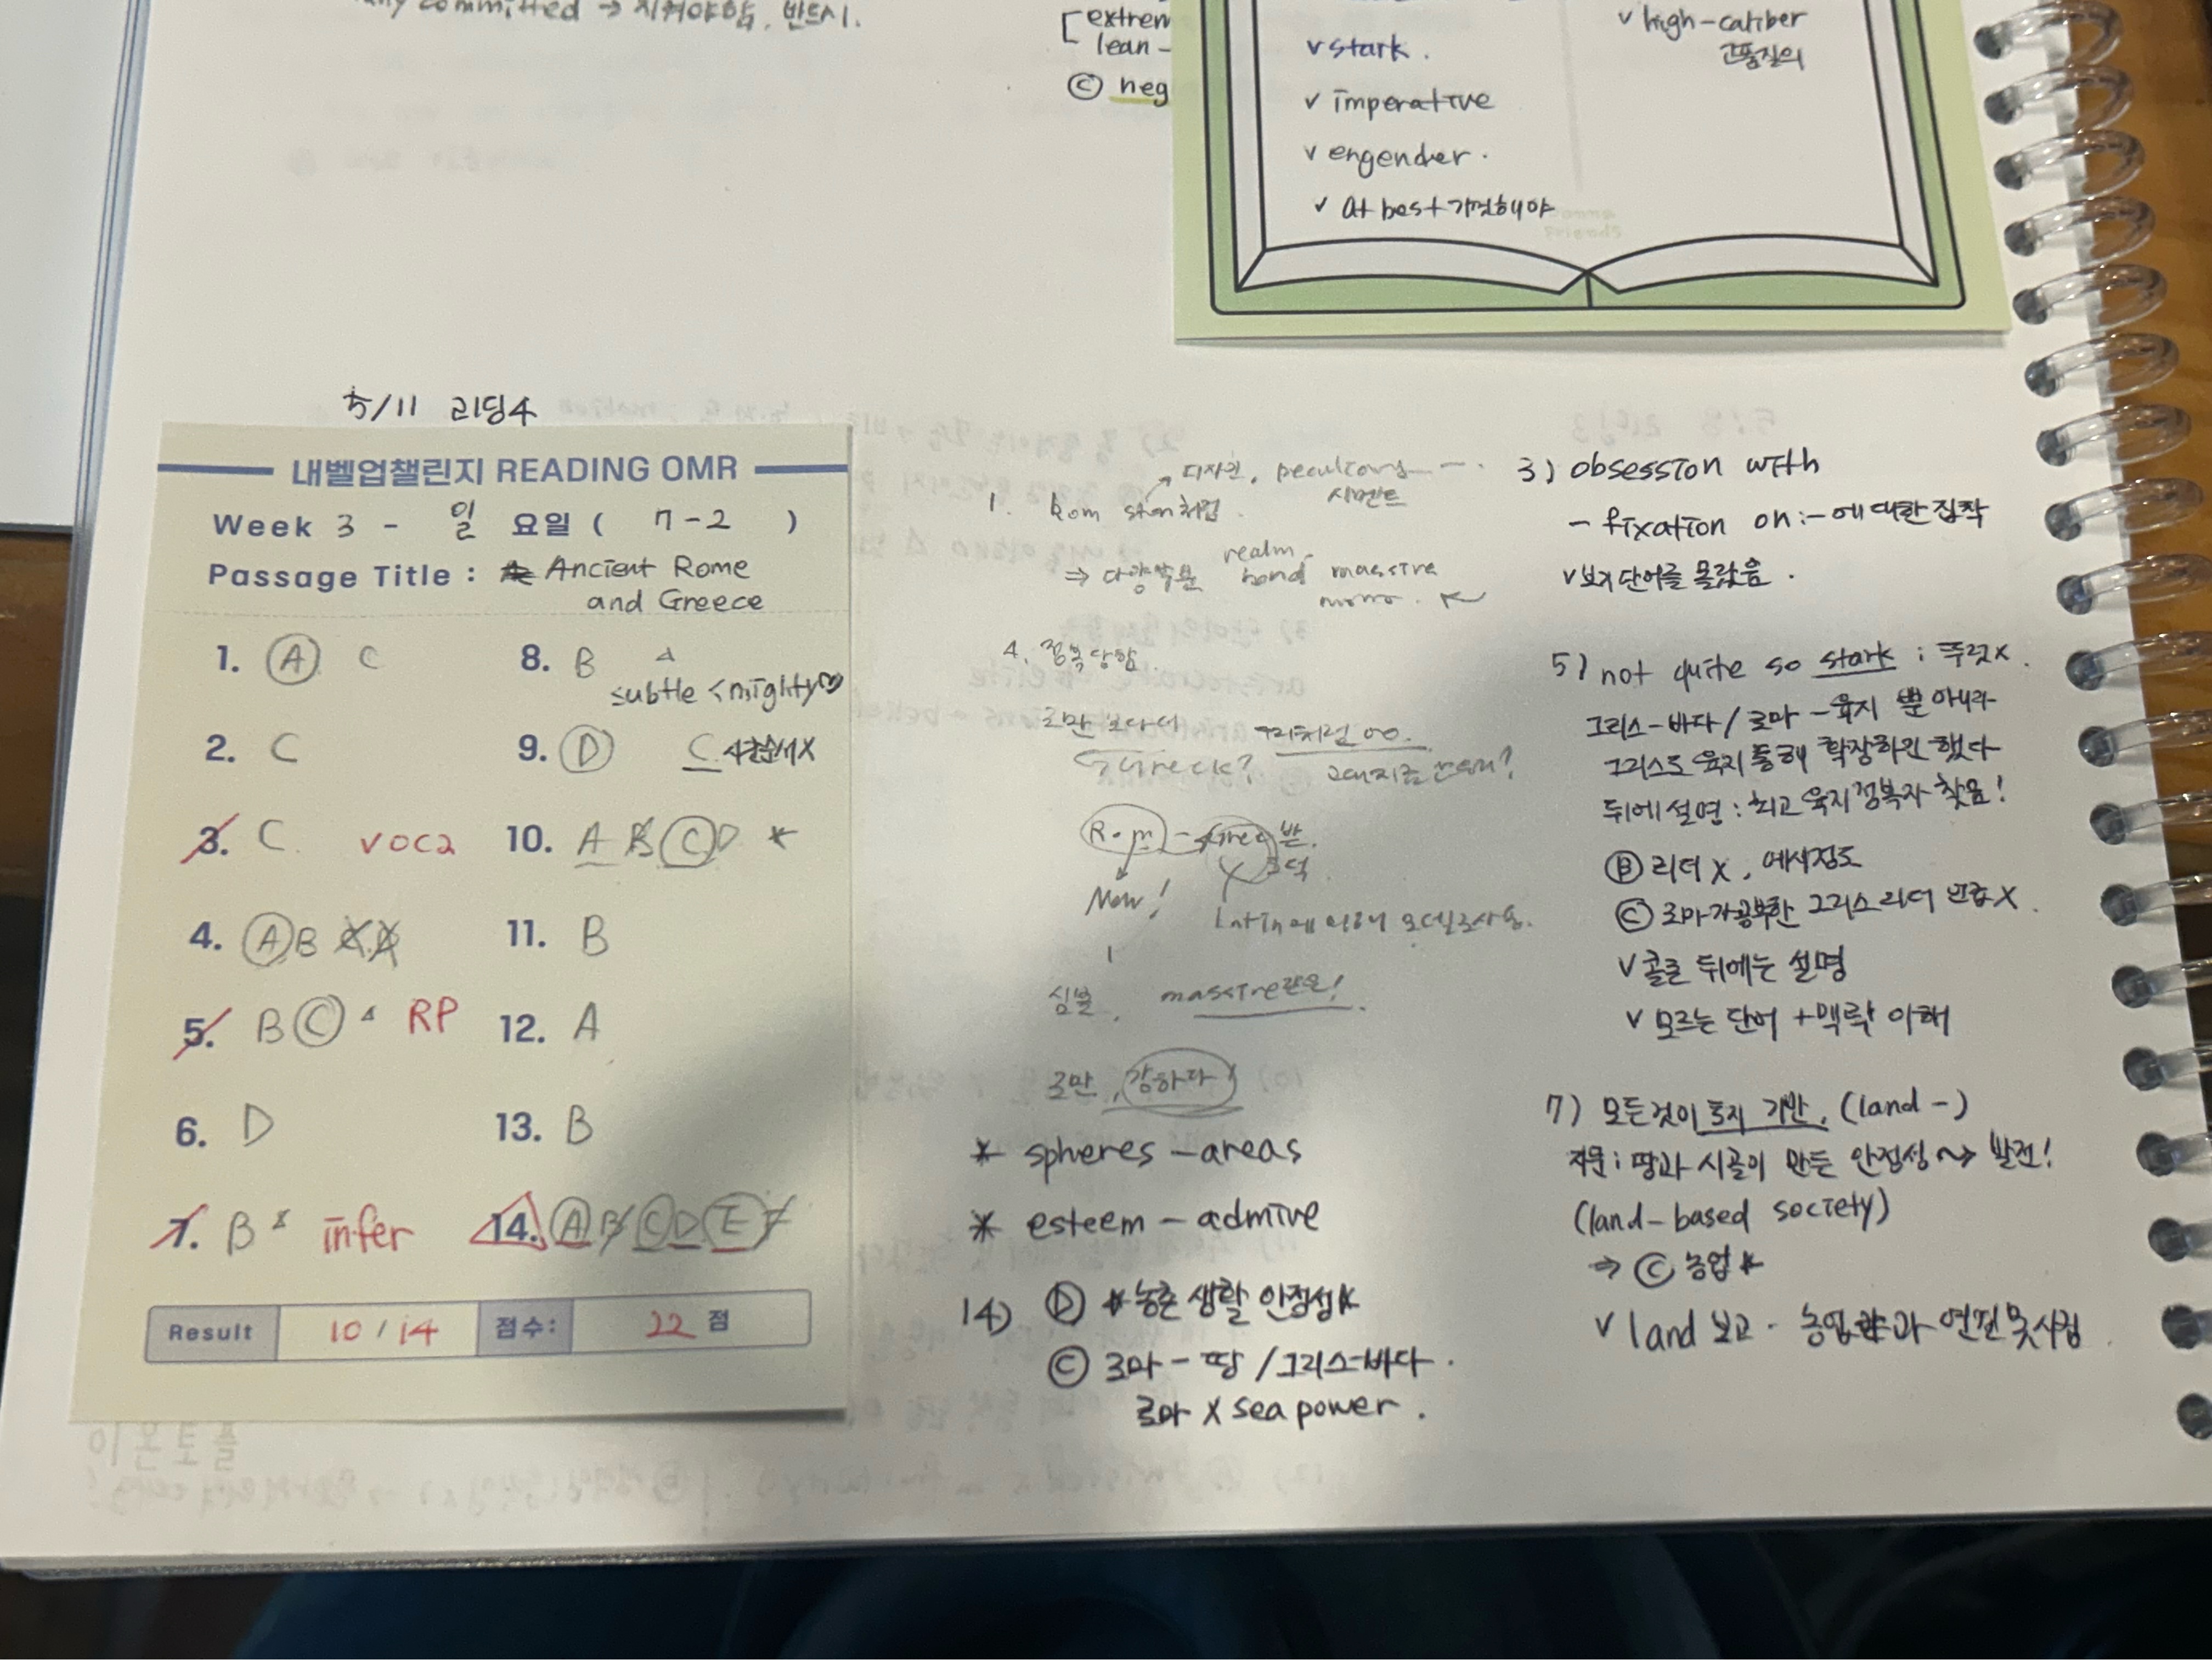 committed → 지켜야함, 반드시.
extrem
lean -
ⓒ neg
v stark.
v imperative
v engender.
v at best 가정해야
v high-caliber
고품질의
5/11 리딩4
내벨업챌린지 READING OMR
Week 3 - 일 요일 ( 7-2 )
Passage Title : Ancient Rome
and Greece
1. A C
2. C
3. C. voca
4. A B C D
5. B C △ RP
6. D
7. B infer
8. B △
subtle < mighty
9. D C 사건순서X
10. A B C D *
11. B
12. A
13. B
14. A B C D E F
Result 10 / 14 점수: 22 점
1. Rom 처럼
→ 디자인,
시멘트
realm
⇒ bond massive
4. 정복당함.
로만 보다더
Greck?
Rom - Grec
New!
Latin에 의해 모델로사용.
심볼, massive같은!
로만, 강하다
* spheres - areas
* esteem - admire
14) Ⓓ *농촌 생활 안정성*
Ⓒ 로마 - 땅 / 그리스-바다.
로마 X sea power.
3) obsession with
- fixation on : ~에 대한 집착
v 보기 단어를 몰랐음.
5) not quite so stark : 뚜렷X.
그리스-바다 / 로마 - 육지 뿐 아니라
그리스도 육지 통해 확장하긴 했다
뒤에 설명 : 최고 육지정복자 찾음!
Ⓑ 리더 X, 예시정도
Ⓒ 로마가공부한 그리스 리더 언급X.
v 콜론 뒤에는 설명
v 모르는 단어 + 맥락 이해
7) 모든것이 토지 기반. (land -)
지문 : 땅과 시골이 만든 안정성 ~> 발전!
(land-based society)
⇒ Ⓒ 농업*
v land 보고. 농업과 연결 못시킴